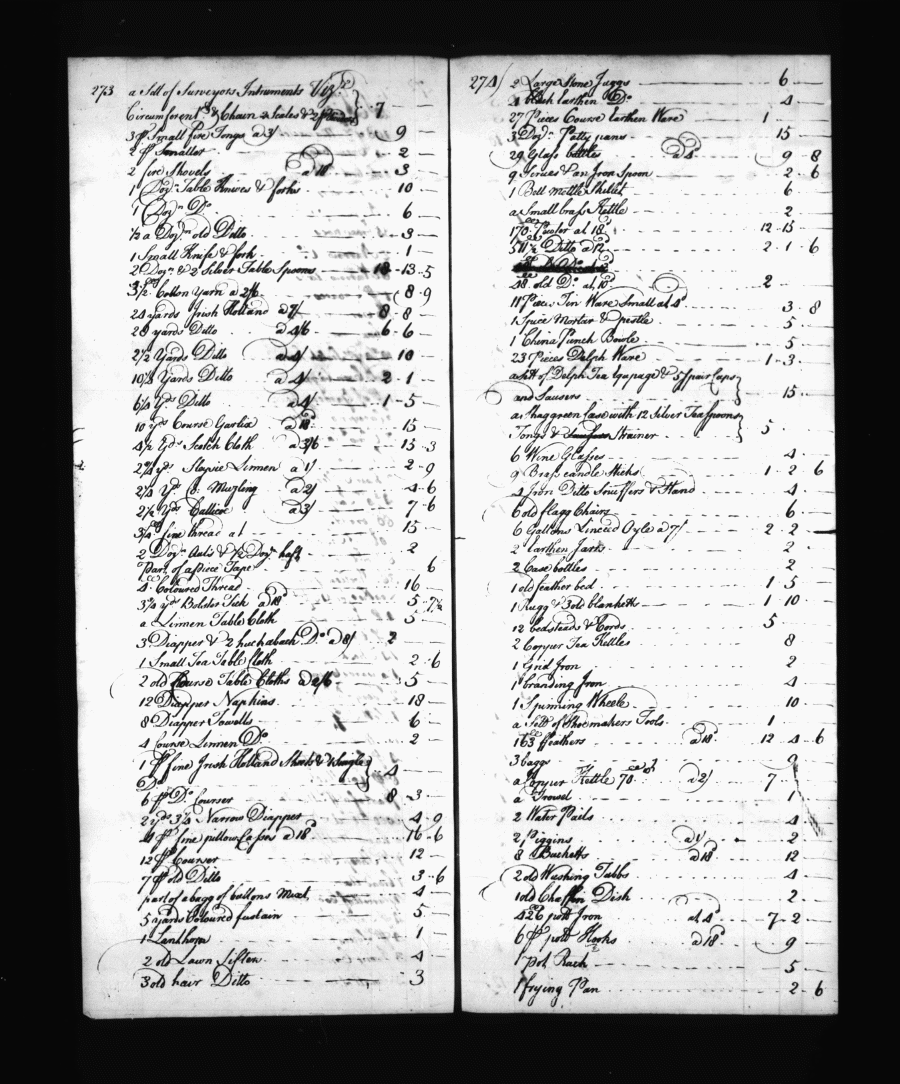 273 a Sett of Surveyors Intruments Vizt
Circumferent & Chain 2 Scales & 2 7 — —
3 pr Small fire Tongs a 3/ 9 —
2 pr Smaller 2 —
2 fire Shovels 3 —
1 Dozn Table Knives & forks 10 —
1 Dozn Do 6 —
½ a Dozn old Ditto 3 —
1 Small Knife & fork 1 —
2 Dozn & 2 Silver Table Spoons 18 - 13 - 5
3½ Cotton Yarn a 2/6 8 - 9
24 yards Irish Holland a 7/ 8 - 8 —
28 yards Ditto a 4/6 6 - 6 —
2½ Yards Ditto a 4/ 10 —
10¼ Yards Ditto a 4/ 2 - 1 —
6¼ Yds Ditto a 4/ 1 - 5 —
10 yds Course Garlix a 18d 15 —
4½ Yds Scotch Cloth a 3/6 15 - 3
2¾ yds Linnen a 1/ 2 - 9
2¼ Yds Muzling a 2/ 4 - 6
2½ Yds Callicoe a 3/ 7 - 6
3¼ fine thread at 15 —
2 Dozn Auls & ½ Dozn hafts 2
Part of a piece Tape 6
4 Coloured Thread 16 —
3¾ yds Bolster Tick a 18d 5 - 7½
a Linnen Table Cloth 5 —
3 Diapper & 2 huckaback Do a 8/ 2
1 Small Tea Table Cloth 2 - 6
2 old Course Table Cloths a 2/6 5 —
12 Diapper Napkins 18 —
8 Diapper Towells 6 —
4 Course Linnen Do 2 —
1 pr fine Irish Holland Sheets & 4 Single
Do 4 —
6 pr Do Courser 8 - 3 —
2 yds 3/4 Narrow Diapper 4 - 9
11 pr fine pillow Cases a 18d 16 - 6
12 pr Courser 12 —
7 pr old Ditto 3 - 6
part of a bagg of buttons Mixt 4 —
5 yards Coloured fustain 5 —
1 Lanthorn 1 —
2 old Lawn Siften 4 —
3 old hair Ditto 3
274/ 2 Large Stone Juggs 6 —
4 black Earthen Do 4 —
27 Pieces Course Earthen Ware 1 — —
3 Dozn Patty pans 15 —
29 Glass bottles a 4d 9 - 8
9 Seives & an Iron Spoon 2 - 6
1 Bell Mettle Skillet 6 —
a Small brass Kettle 2 —
170 Puter at 18d 12 - 15 —
Ditto a 12d 2 - 1 - 6
48 old Do at 10d 2 — —
11 Pieces Tin Ware Small at 4d 3 - 8
1 Spice Mortar & pestle 5 —
1 China Punch Bowle 5 —
23 Pieces Delph Ware 1 - 3 —
a Sett of Delph Tea Equipage & 5 pair Cups
and Sausers 15 —
a Shaggreen Case with 12 Silver Tea Spoons
Tongs & Strainer 5 — —
6 Wine Glasses 4 —
9 Brass candle Sticks 1 - 2 - 6
4 Iron Ditto Snuffers & Stand 4 —
6 old flagg Chairs 6 —
6 Gallons Linceed Oyle a 7/ 2 - 2 —
2 Earthen Jarrs 2 —
2 Case bottles 2 —
1 old feather bed 1 - 5 —
1 Rugg & 3 old blanketts 1 - 10 —
12 bedsteads & Cords 5 — —
2 Copper Tea Kettles 8
1 Grid Iron 2
1 branding Iron 4
1 Spinning Wheele 10 —
a Sett of Shoemakers Tools 1 — —
163 feathers a 18d 12 - 4 - 6
3 baggs 9 —
a Copper Kettle 70 a 2/ 7 — —
a Trowel 1
2 Water Pails 4 —
2 Piggins a 1/ 2 —
8 Bucketts a 18d 12 —
2 old Washing Tubbs 4 —
1 old Chaffin Dish 2 —
426 pott Iron at 4d 7 - 2 —
6 pr pott Hooks a 18d 9 —
1 pot Rack 5 —
1 frying Pan 2 - 6